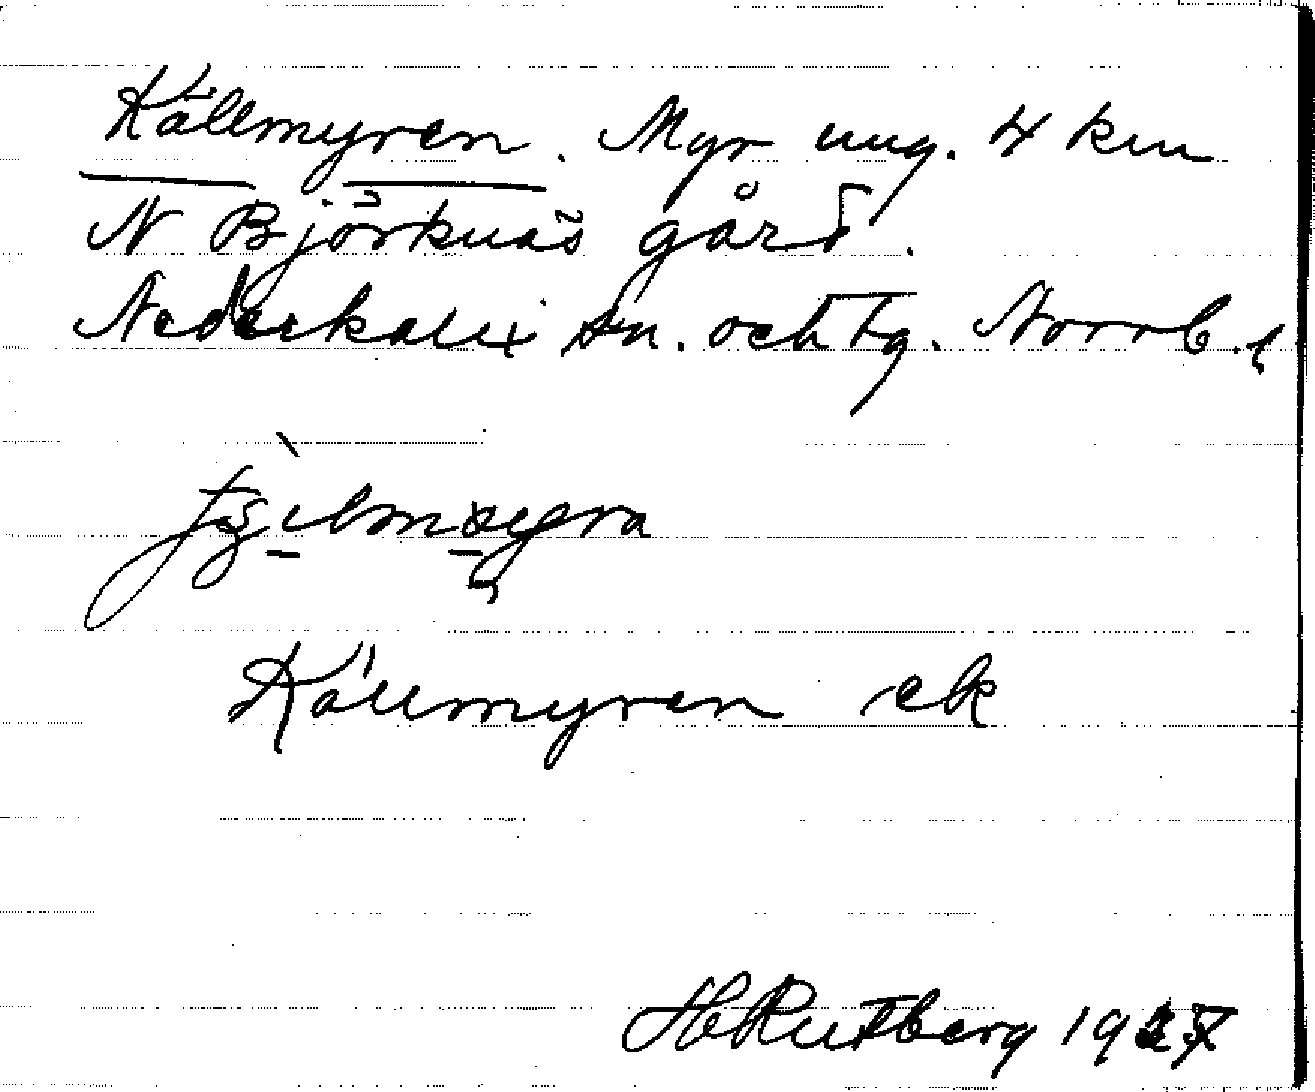 Källmyren. Myr ung. 4 km
N Björknäs gård.
Nederkalix sn. och tg. Norrb. l
Källmyren ek
H Rutberg 1927